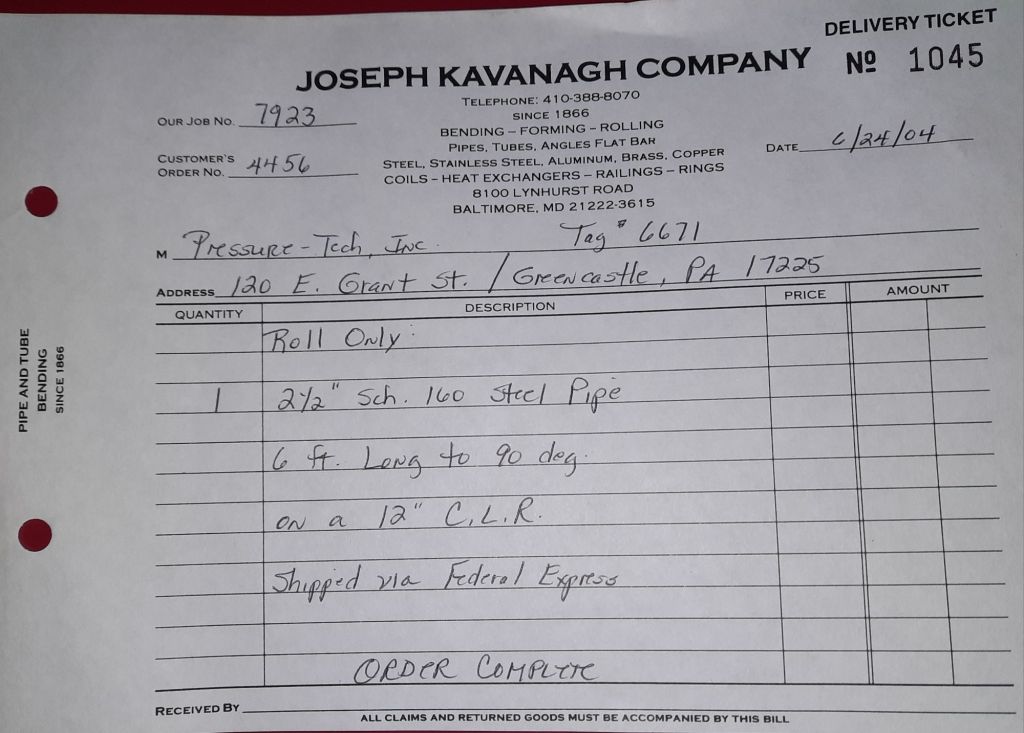 DELIVERY TICKET
JOSEPH KAVANAGH COMPANY Nº 1045
TELEPHONE: 410-388-8070
SINCE 1866
OUR JOB NO. 7923
BENDING – FORMING – ROLLING
PIPES, TUBES, ANGLES FLAT BAR
DATE 6/24/04
CUSTOMER'S ORDER NO. 4456
STEEL, STAINLESS STEEL, ALUMINUM, BRASS, COPPER
COILS – HEAT EXCHANGERS – RAILINGS – RINGS
8100 LYNHURST ROAD
BALTIMORE, MD 21222-3615
M Pressure-Tech, Inc. Tag # 6671
ADDRESS 120 E. Grant St. / Greencastle, PA 17225
QUANTITY DESCRIPTION PRICE AMOUNT
Roll Only:
1 2 1/2" Sch. 160 Steel Pipe
6 ft. Long to 90 deg.
on a 12" C.L.R.
Shipped via Federal Express
ORDER COMPLETE
RECEIVED BY
ALL CLAIMS AND RETURNED GOODS MUST BE ACCOMPANIED BY THIS BILL
PIPE AND TUBE
BENDING
SINCE 1866